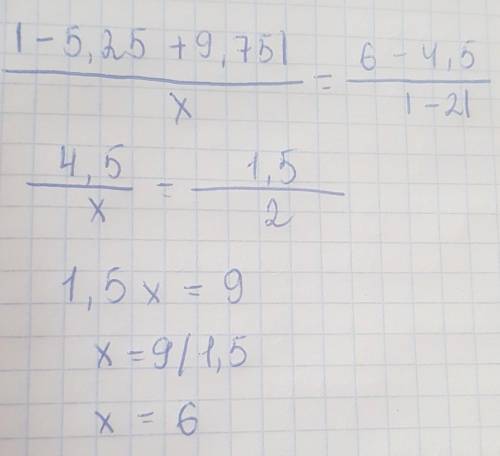 |-5,25 + 9,75| / x = 6 - 4,5 / |-2|
4,5 / x = 1,5 / 2
1,5 x = 9
x = 9 / 1,5
x = 6